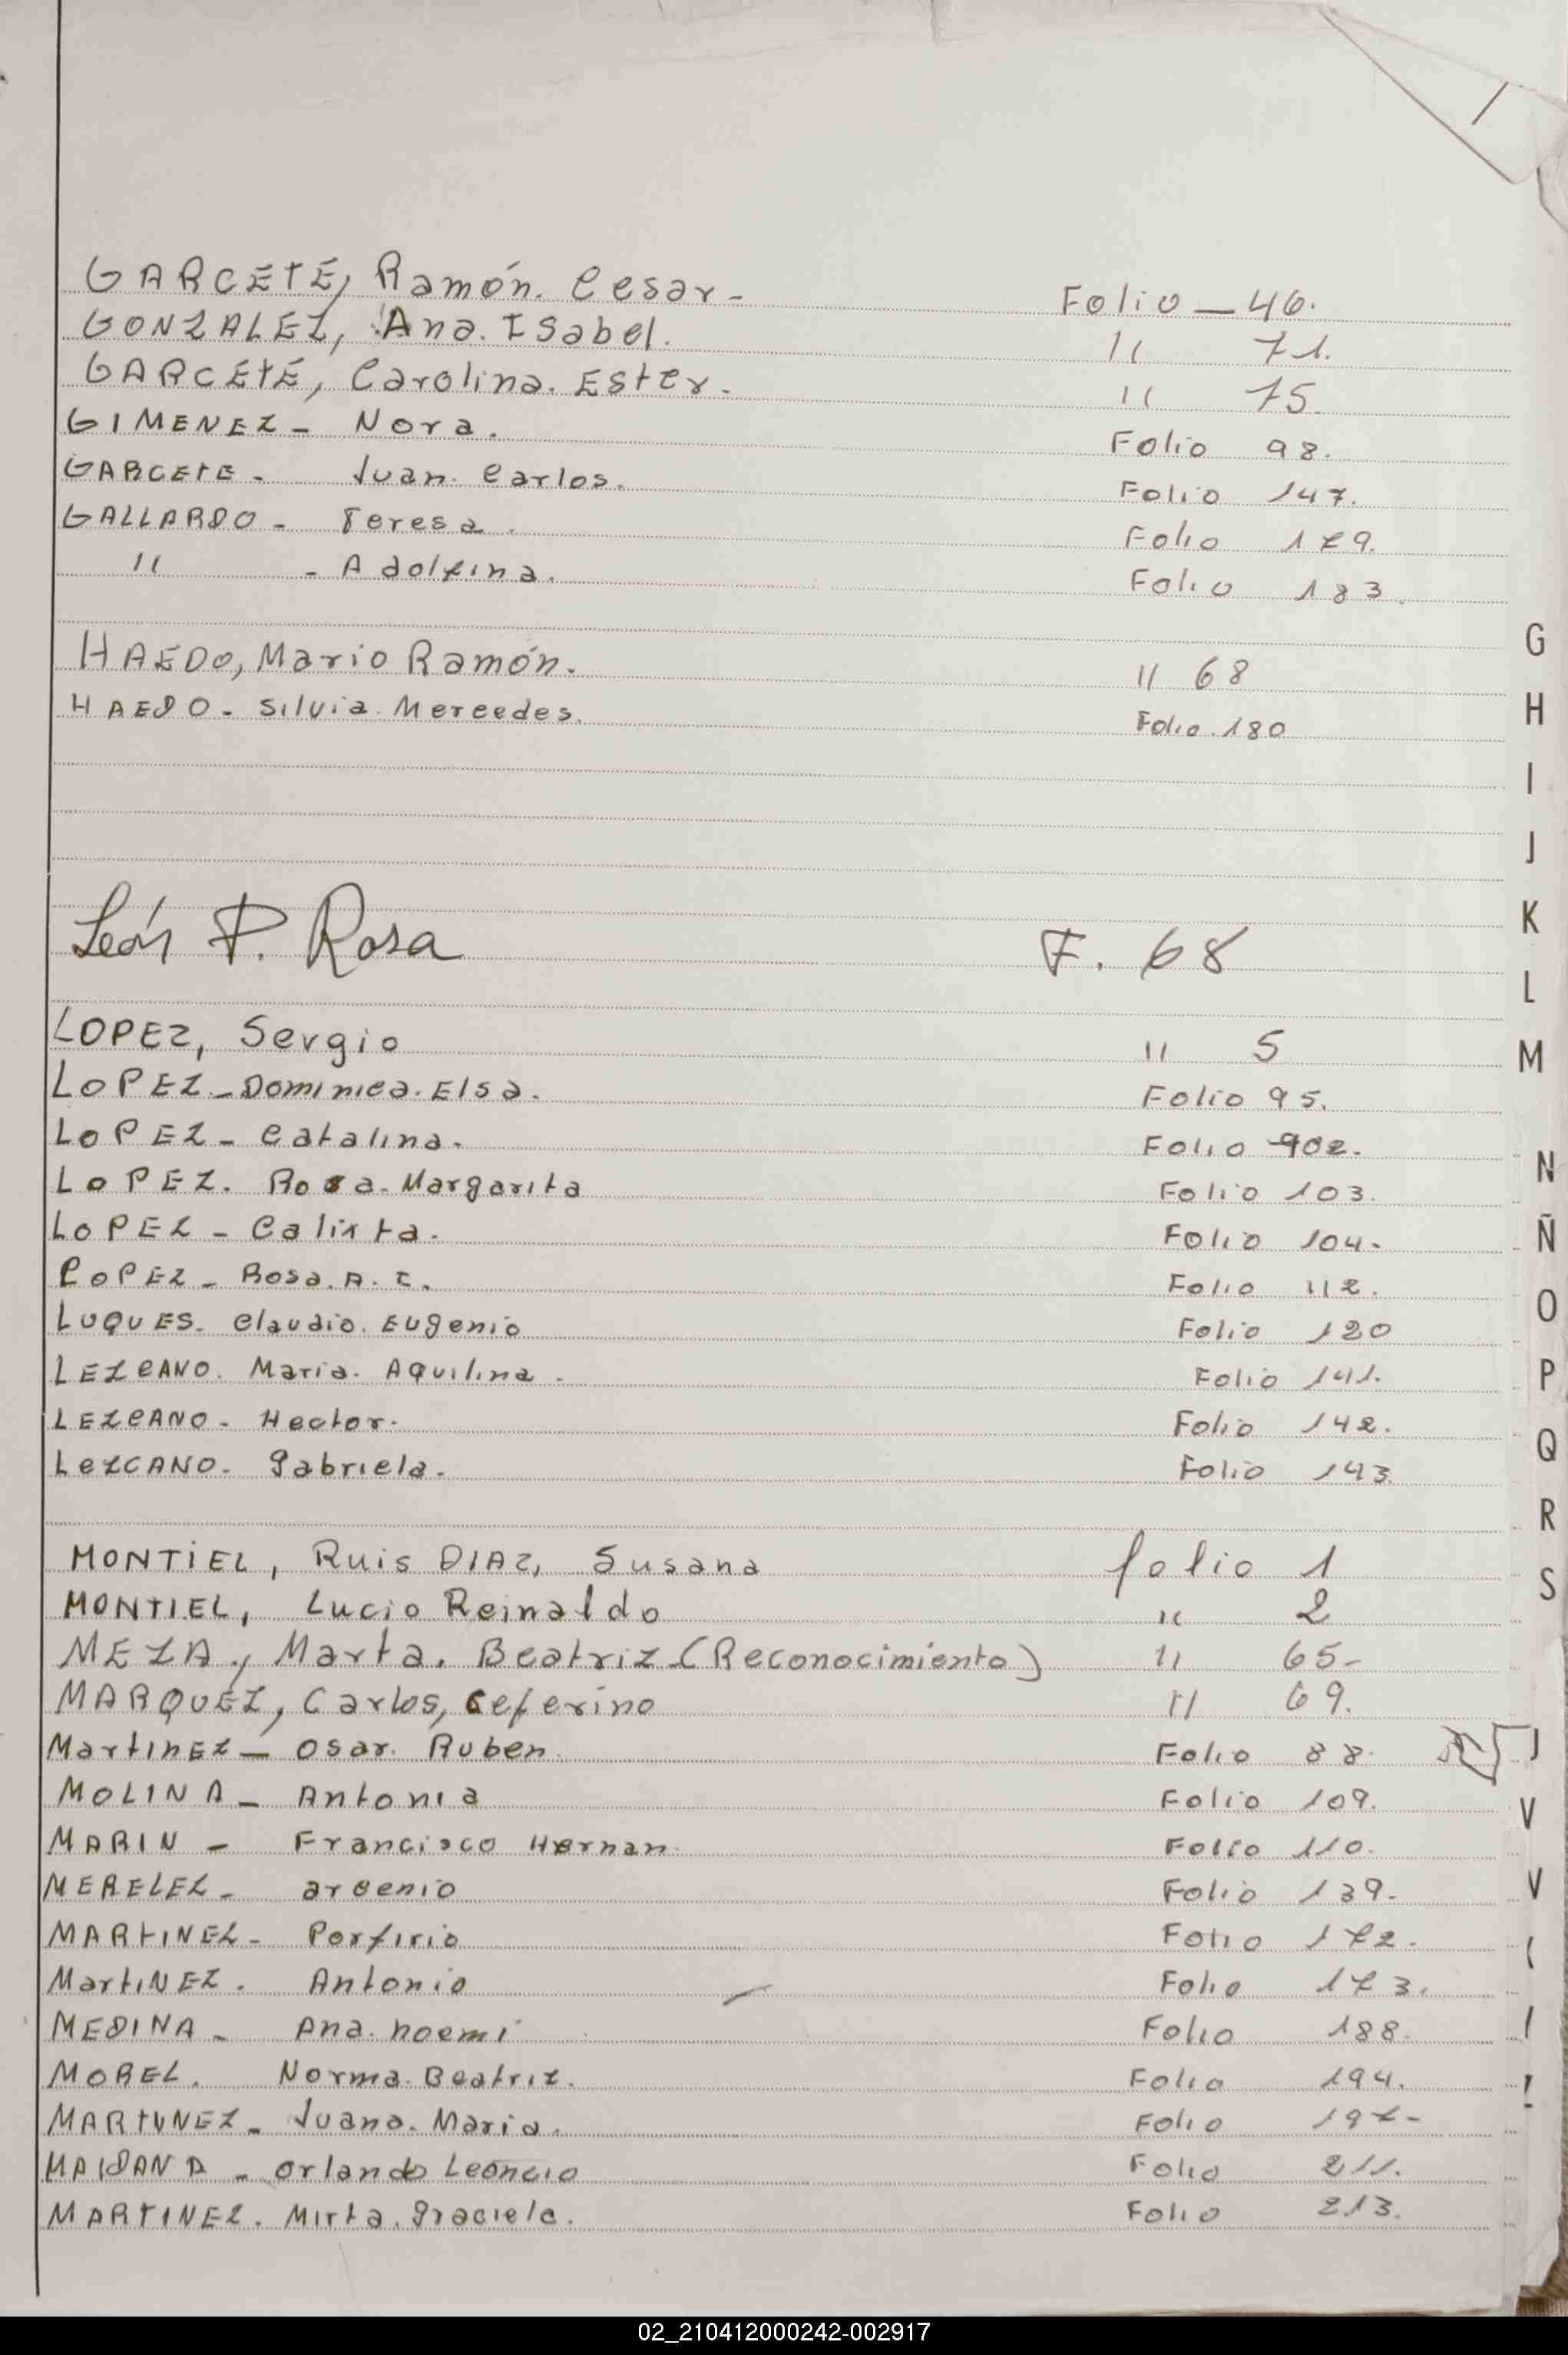 GARCETE, Ramón. Cesar - Folio - 46.
GONZALEZ, Ana. Isabel. " 71.
GARCETE, Carolina. Ester. - " 75.
GIMENEZ - Nora. Folio 98.
GARCETE - Juan. Carlos. Folio 147.
GALLARDO - Teresa. Folio 179.
" - Adolfina. Folio 183.
HAEDO, Mario Ramón. " 68
HAEDO - Silvia. Mercedes. Folio. 180
León P. Rosa F. 68
LOPEZ, Sergio " 5
LOPEZ - Dominica. Elsa. Folio 95.
LOPEZ - Catalina. Folio 902.
LOPEZ. Rosa. Margarita Folio 103.
LOPEZ - Calixta. Folio 104-
LOPEZ - Rosa. A. I. Folio 112.
LUQUES. Claudio. Eugenio Folio 120
LEZCANO. Maria. Aquilina. Folio 141.
LEZCANO - Hector. Folio 142.
LEZCANO. Gabriela. Folio 143.
MONTIEL, Ruis DIAZ, Susana folio 1
MONTIEL, Lucio Reinaldo " 2
MEZA, Marta. Beatriz (Reconocimiento) " 65-
MARQUEZ, Carlos, Ceferino " 69.
MartinEZ - Osar. Ruben. Folio 88.
MOLINA - Antonia Folio 109.
MARIN - Francisco Hernan. Folio 110.
MERELEZ - arsenio Folio 139.
MARTINEZ - Porfirio Folio 172.
MartiNEZ. Antonio Folio 173.
MEDINA - Ana. noemi Folio 188.
MOREL. Norma. Beatriz. Folio 194.
MARTINEZ - Juana. Maria. Folio 197-
MAIDANA - Orlando Leoncio Folio 211.
MARTINEZ. Mirta. Graciela. Folio 213.
G
H
I
J
K
L
M
N
Ñ
O
P
Q
R
S
V
V
02_210412000242-002917